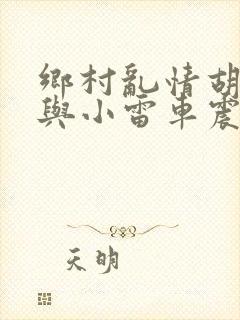 鄉村亂情胡
與小雷車震
天明